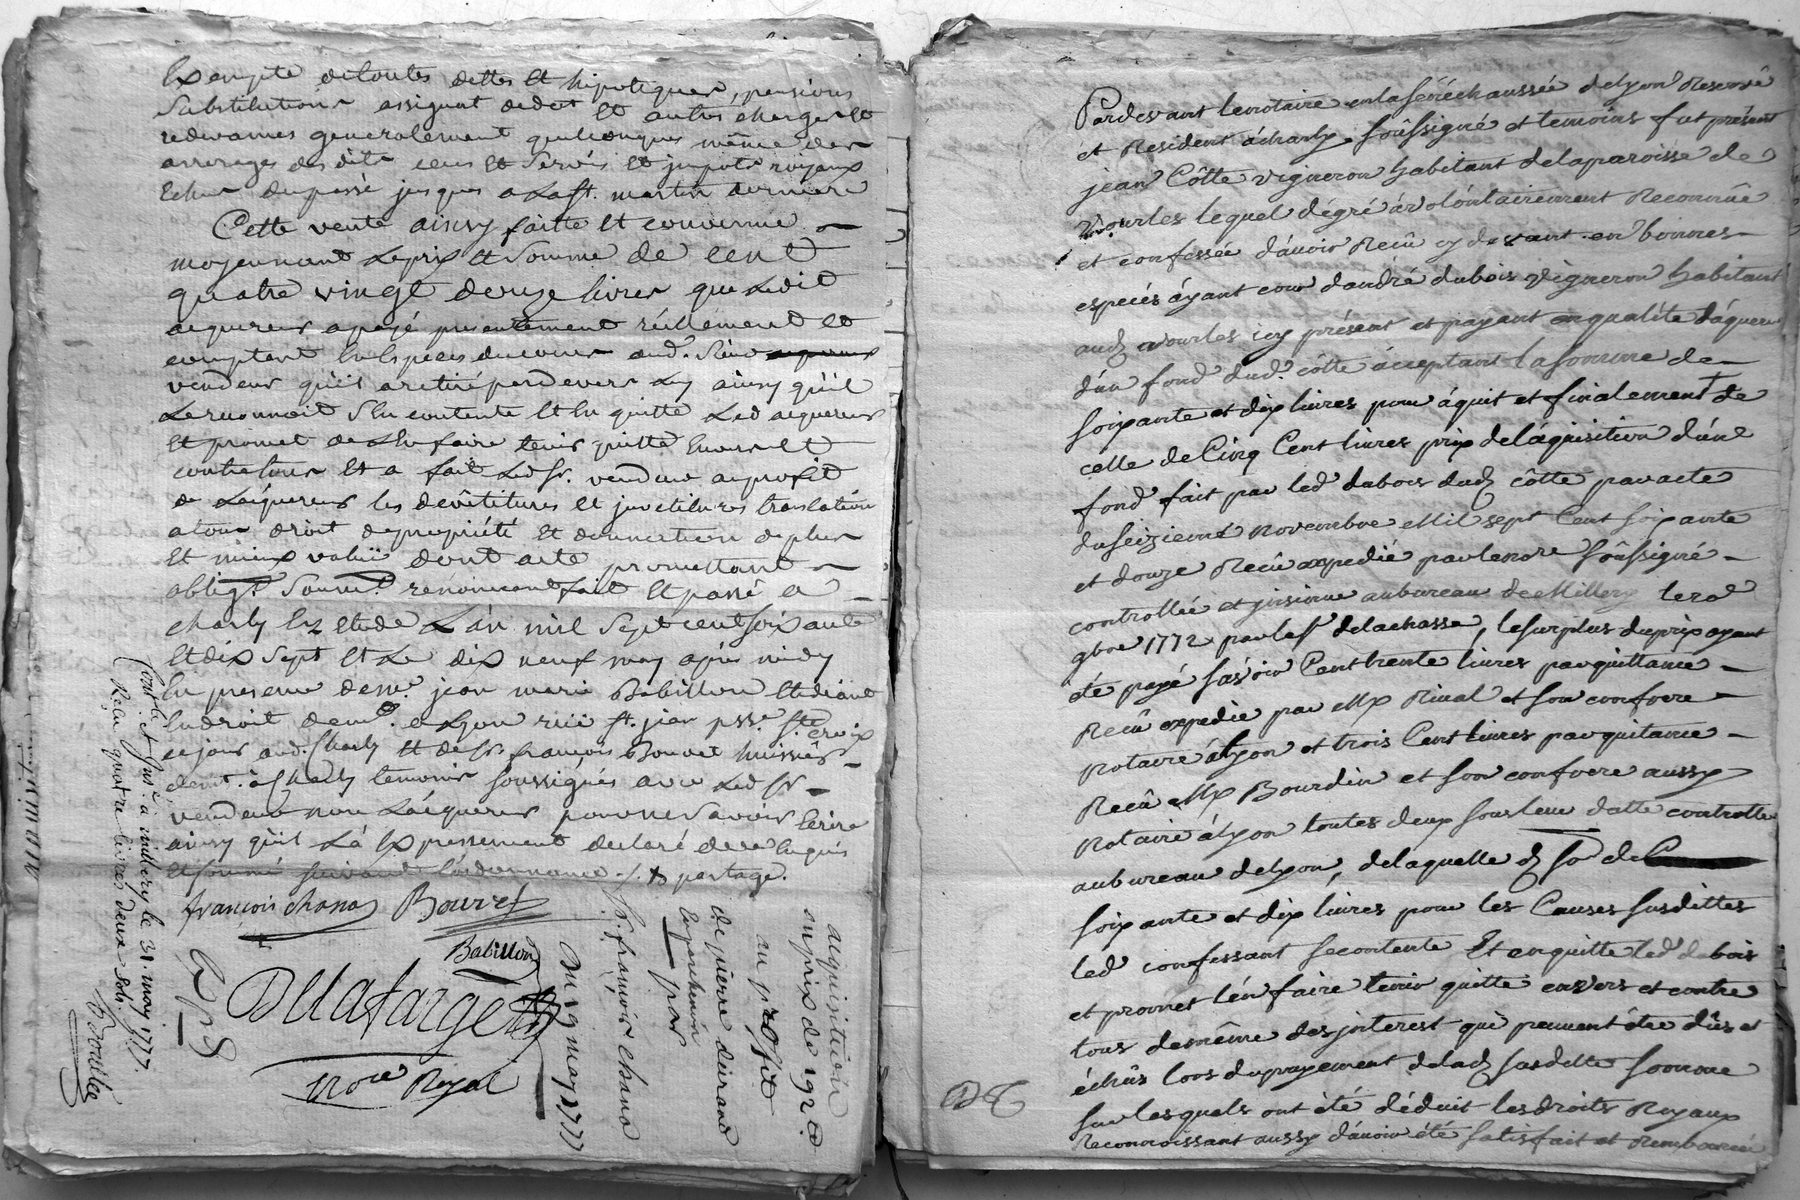 Exempte de toutes dettes et hipoteques, pensions
substitutions assignat de dot et autres charges et
redevances generalement quelconques même des
arrerages des dits cens et servis et impots royaux
echus du passé jusques a la st. martin derniere
Cette vente ainsy faitte et convenue
moyennant le prix et somme de cent
quatre vingt douze livres que ledit
acquereur a payé presentement réellement et
comptant en especes du cours aud. sieur
vendeur qu'il a retiré par devers luy ainsy qu'il
le reconnoit s'en contente et en quitte led acquereur
et promet de l'en faire tenir quitte envers et
contre tous et a fait led sr. vendeur au profit
de l'aquereur les devêtitures et investitures translation
a tous droit de propriété et donnation de plus
et mieux value dont acte promettant
obligt. soumt. renonceant fait et passé a
charly en etude l'an mil sept cent soixante
et dix sept et le dix neuf may après midy
en presence de mr. jean marie Babillon etudiant
en droit demt. a Lyon rüe st. jean psse. ste. croix
ce jour aud. Charly et de sr. françois Bouvet huissier
demt. à Charly temoins soussignés avec led sr
vendeur non l'aéquereur pour ne savoir ecrire
ainsy qu'il l'a Expressement declaré de ce enquis
et sommé suivant l'ordonnance ./. partage.
françois chana Bouvet
Babillon
Dellafarge
nore Royal
Contlé. et Insé. à millery le 31. may 1777.
Reçu quatre livres deux sols
acquisition
au prix de 192 #
au profit
de pierre durand
par
sr. françois chana
Du 19 may 1777
Pardevant le notaire en la sénéchaussée de lyon Reservé
et Resident á charly soûssigné et temoins fut présent
jean Côtte vigneron habitant de la paroisse de
vourles lequel dégré & volontairement Reconnüe
et confessée d'avoir Recû cy devant en bonnes
especés áyant cour d'andré dubois vigneron habitant
aud vourles icy présent et payant en qualité d'áquereur
d'un fond dud. côtte ácceptant la somme de
soixante et dix livres pour áquit et finalement de
celle de Cinq Cent livres prix de l'áquisition d'une
fond fait par led dubois dud côtte par acte
du seizieme novembre Mil sept Cent soixante
et douze Recû expedié par le nore soûssigné
controllée et jnsinue au bureau de Millery le 20
9bre 1772 par le sr delachasse, le surplus du prix ayant
été payé sávoir Cent trente livres par quittance
Recû expedie par Me Rival et son confrere
notaire á lyon et trois Cent livres par quitance
Recû Me Bourdin et son confrere aussy
notaire á lyon toutes deux sous leur datte controlle
au bureau de lyon, de laquelle d. so de
soixante et dix livres pour les Causes susdittes
led confessant se contente Et en quitte led dubois
et promet l'en faire tenir quitte envers et contre
tous de même des jnterest qui peuvent être dûs et
échûs lors du payement de lad susditte somme
sur lesquels ont été déduit les droits Royaux
reconnoissant aussy d'ávoir été satisfait et remboursé